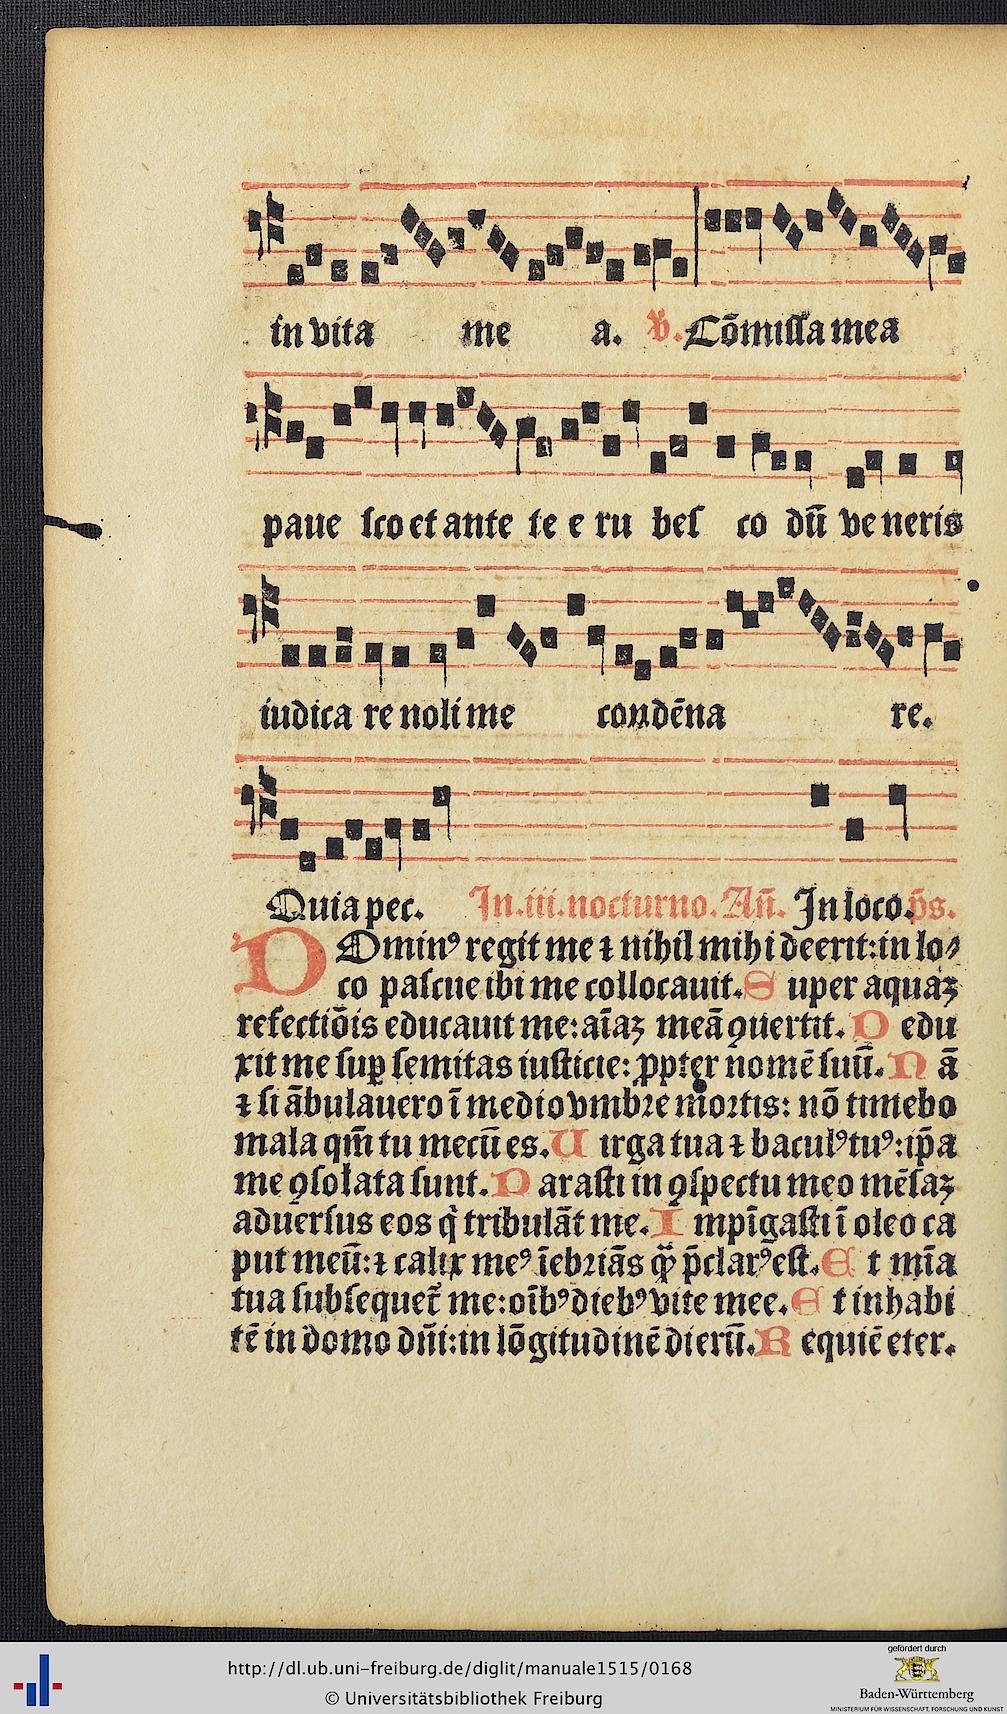 in vita me a. V. Cōmissa mea
paue sco et ante te e ru bes co dū ve neris
iudica re noli me condēna re.
Quia pec. In .iii. nocturno. Añ. In loco. p̄s.
DOminꝰ regit me ⁊ nihil mihi deerit: in lo⸗
co pascue ibi me collocauit. S uper aquaꝫ
refectiōis educauit me: aīaꝫ meā ꝯuertit. D edu
xit me suꝑ semitas iusticie: ꝓpter nomē suū. N ā
⁊ si ābulauero ī medio vmbre mortis: nō timebo
mala qm̄ tu mecū es. U irga tua ⁊ baculꝰ tuꝰ: ip̄a
me ꝯsolata sunt. P arasti in ꝯspectu meo mēsaꝫ
aduersus eos q̇ tribulāt me. I mpīgasti ī oleo ca
put meū: ⁊ calix meꝰ īebriās q̈ꝫ p̄clarꝰ est. E t mīa
tua subsequet̄ me: oībꝰ diebꝰ vite mee. E t inhabi
tē in domo dn̄i: in lōgitudinē dierū. R equiē eter.
http://dl.ub.uni-freiburg.de/diglit/manuale1515/0168
© Universitätsbibliothek Freiburg
gefördert durch
Baden-Württemberg
MINISTERIUM FÜR WISSENSCHAFT, FORSCHUNG UND KUNST